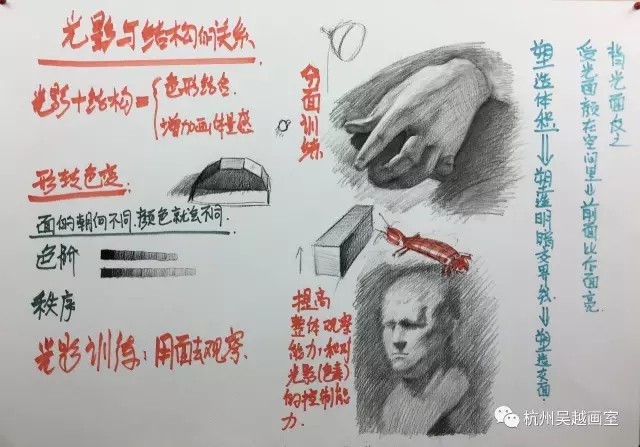 光影与结构的关系.
光影+结构={色形结合.
增加画面体量感
形转色变.
面的朝向不同.颜色就会不同.
色阶
秩序
光影训练:用面去观察.
分面训练
提高
整体观察
能力,和对
光影(色素)
的控制能
力.
背光面反之
受光面颜在空间里⇒前面比后面亮.
塑造体积⇒塑造明暗交界线⇒塑造支面.
杭州吴越画室